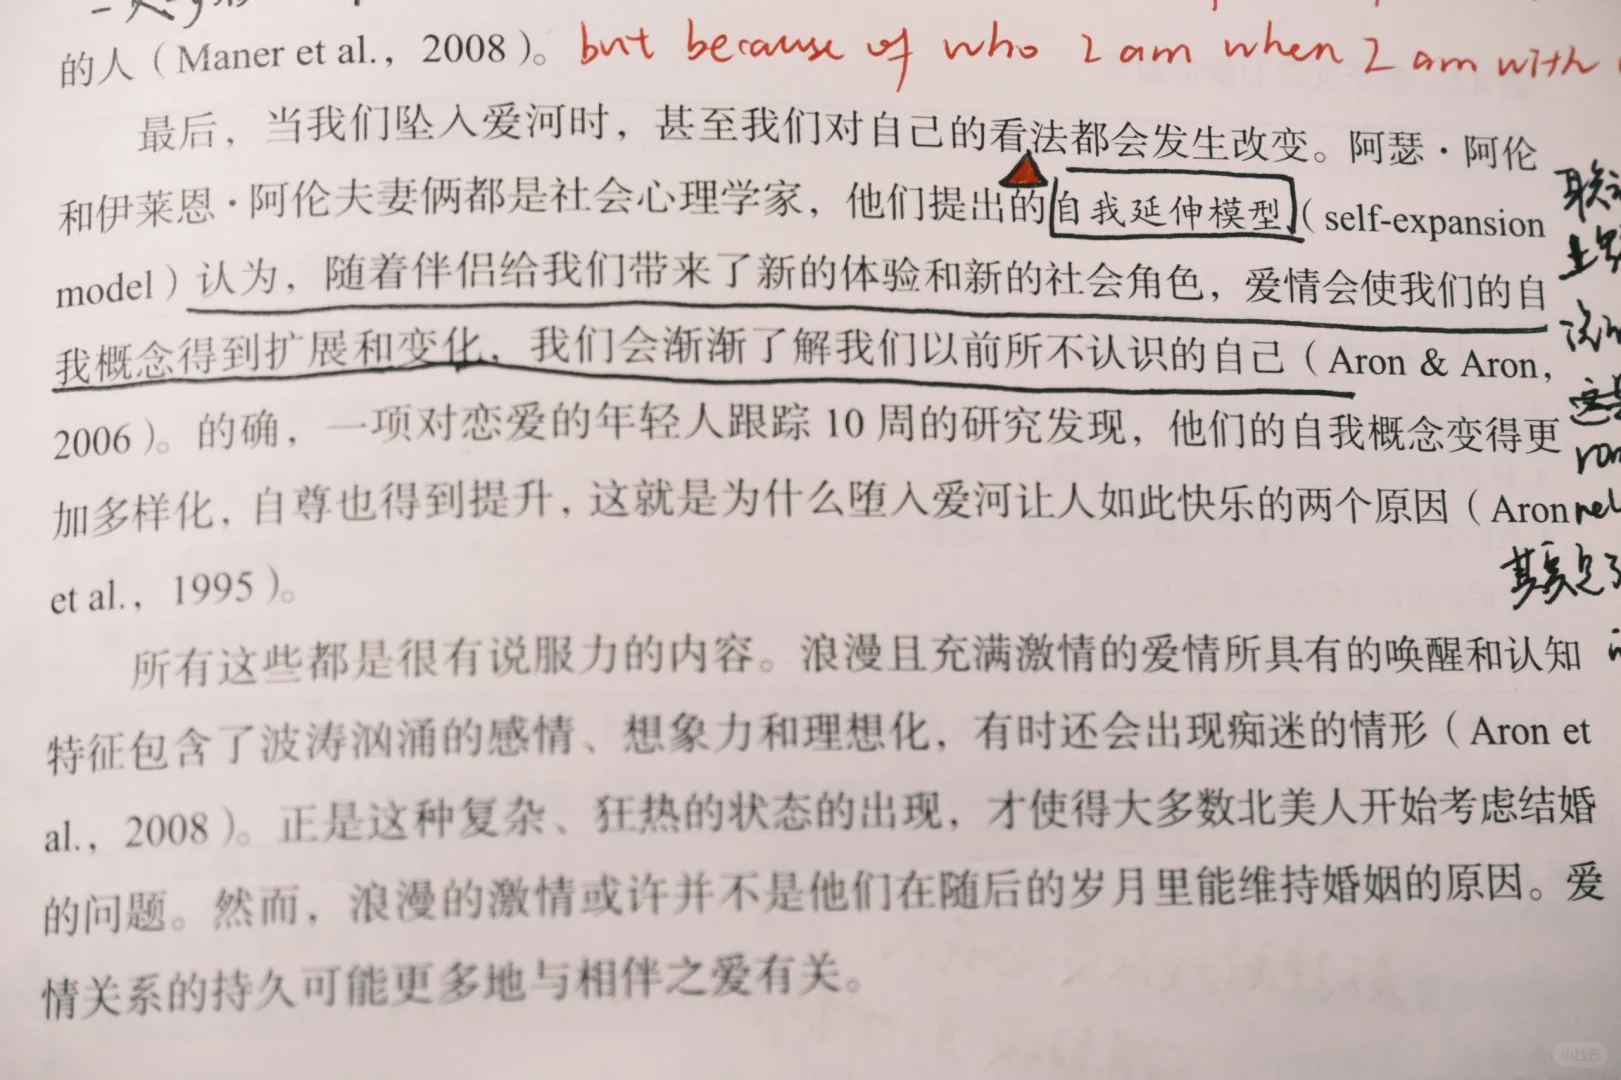 的人（Maner et al.，2008）。 but because of who I am when I am with
最后，当我们坠入爱河时，甚至我们对自己的看法都会发生改变。阿瑟·阿伦
和伊莱恩·阿伦夫妻俩都是社会心理学家，他们提出的自我延伸模型（self-expansion
model）认为，随着伴侣给我们带来了新的体验和新的社会角色，爱情会使我们的自
我概念得到扩展和变化，我们会渐渐了解我们以前所不认识的自己（Aron & Aron，
2006）。的确，一项对恋爱的年轻人跟踪 10 周的研究发现，他们的自我概念变得更
加多样化，自尊也得到提升，这就是为什么堕入爱河让人如此快乐的两个原因（Aron
et al.，1995）。
所有这些都是很有说服力的内容。浪漫且充满激情的爱情所具有的唤醒和认知
特征包含了波涛汹涌的感情、想象力和理想化，有时还会出现痴迷的情形（Aron et
al.，2008）。正是这种复杂、狂热的状态的出现，才使得大多数北美人开始考虑结婚
的问题。然而，浪漫的激情或许并不是他们在随后的岁月里能维持婚姻的原因。爱
情关系的持久可能更多地与相伴之爱有关。
小红书